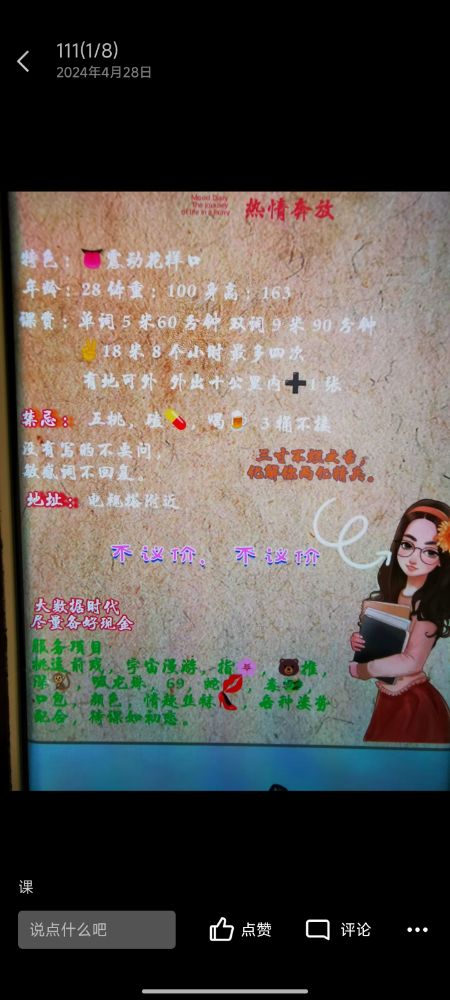 111(1/8)
2024年4月28日
Mood Diary
The journey
of life in a hurry
热情奔放
特色：👅震动花样口
年龄：28 体重：100 身高：163
课费：单词 5 米60 分钟 双词 9 米 90 分钟
✌️18 米 8 个小时 最多四次
有地可外 外出十公里内➕1 张
禁忌：五挑，💊 喝🍺 3 桶不接
没有写的不要问，
敏感词不回复。
三寸不烂之舌，
化解你两亿精兵。
地址：电视塔附近
不议价，不议价
大数据时代
尽量备好现金
服务项目
挑逗前戏，宇宙漫游，指🌸，🐻推，
深🦉，69，蛇💋，
口包，颜色，情趣丝袜👠，各种姿势
配合，待课如初恋。
课
说点什么吧
点赞
评论